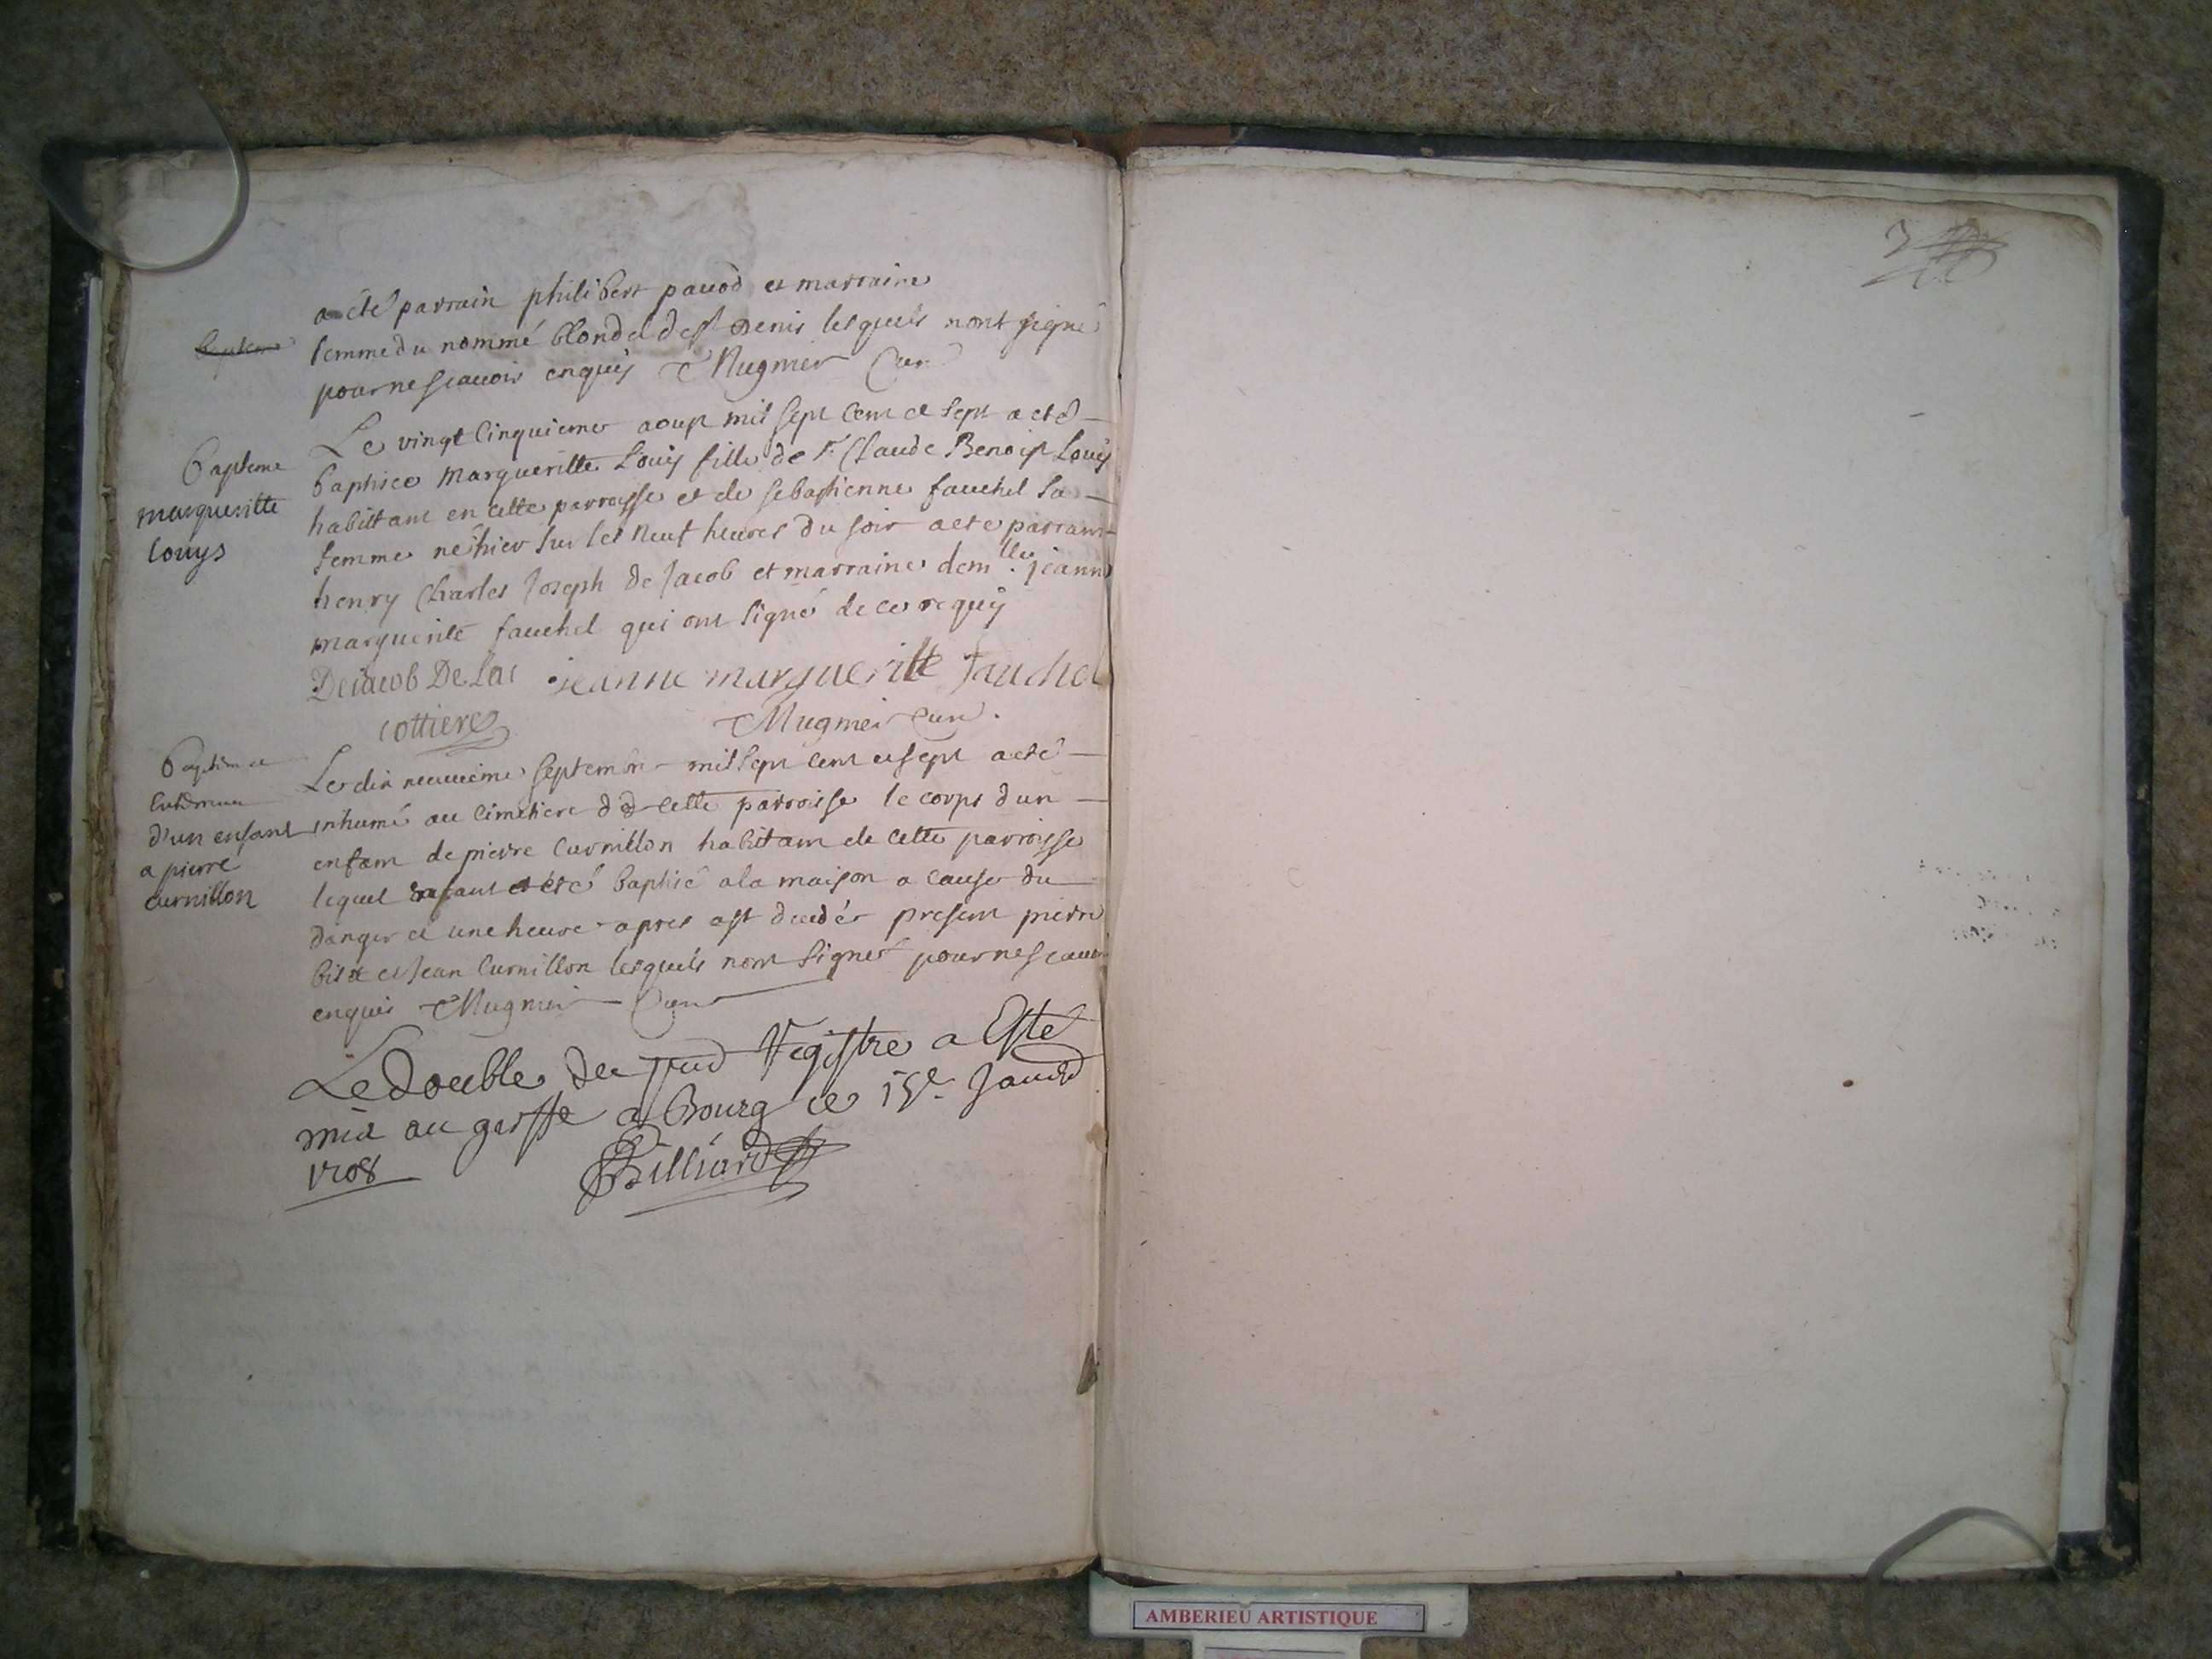 a été parrain philibert pavod et marraine
femme du nommé blondel de st Denis lesquels nont signé
pour ne scavoir enquis Mugmer Curé
Bapteme
margueritte
louys
Le vingt cinquieme aoust mil sept cent et sept a eté
baptisee Margueritte Louis fille de Sr Claude Benoist Louis
habittant en cette parroisse et de sebastienne fauchel sa
femme né hier sur les neuf heures du soir a eté parrain
henry Charles Joseph de Jacob et marraine demlle jeanne
marguerite fauchel qui ont signé de ce requis
De iacob De La
cottiere
jeanne margueritte fauchel
Mugmer Curé.
Bapteme et
d'un enfant
a pierre
curnillon
Le dix neuvieme septembre mil sept cent et sept a eté
inhumé au cimetiere de cette parroisse le corps dun
enfant de pierre Curnillon habitant de cette parroisse
lequel a été baptisé a la maison a cause du
danger et une heure apres est decedé present pierre
et Jean Curnillon lesquels nont signé pour ne scavoir
enquis Mugmer Curé
Le double du pnt Registre a Esté
mis au greffe a Bourg ce 15e Janvier
1708
Billiard
AMBERIEU ARTISTIQUE